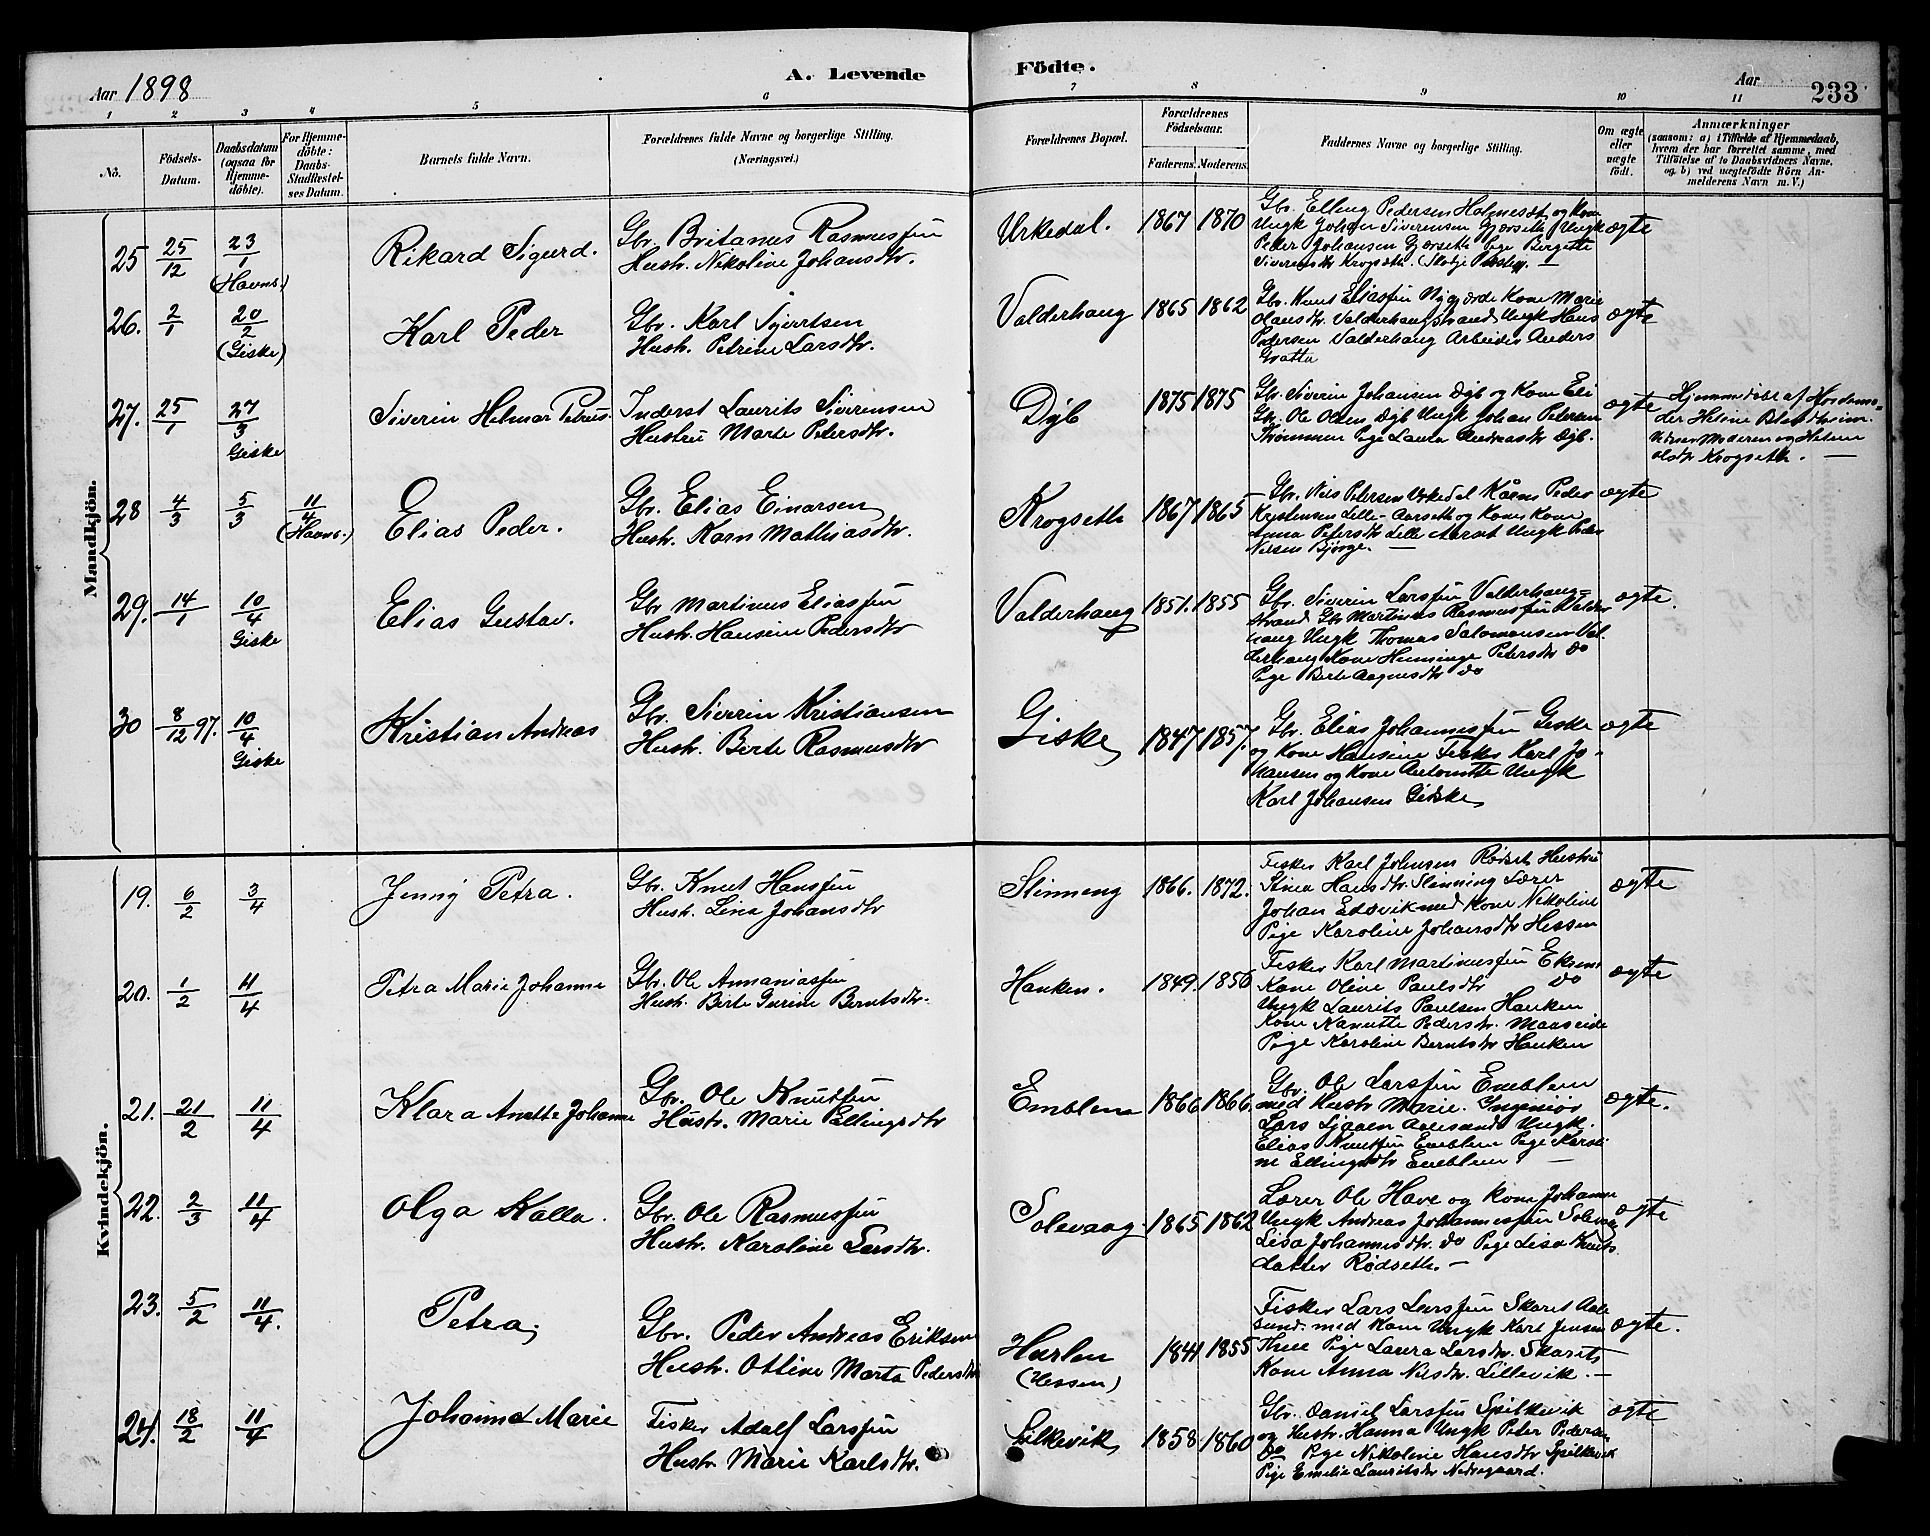 Aar 1898
A. Levende
Födte.
Aar
233
1 2 3 4 5 6 7 8 9 10 11
No.
Födsels-Datum.
Daabsdatum (ogsaa for Hjemme-döbte).
For Hjemme-döbte: Daabs-Stadfæstel-ses Datum.
Barnets fulde Navn.
Forældrenes fulde Navne og borgerlige Stilling.
(Næringsvei.)
Forældrenes Bopæl.
Forældrenes Födselsaar.
Faderens. Moderens.
Faddernes Navne og borgerlige Stilling.
Om ægte eller uægte födt.
Anmærkninger
(saasom: a) i Tilfælde af Hjemmedaab, hvem der har forrettet samme, med Tilföielse af to Daabsvidners Navne, og b) ved uægtefödte Börn An-melderens Navn m. V.)
Mandkjön.
25 25/12 23/1 (Havns.) Rikard Sigurd.
Gbr. Britanus Rasmussen
Hustr. Nikoline Johansdtr.
Urkedal. 1867 1870
Gbr. Elling Pedersen Holmeset og Kone
Ungk Johan Siverensen Gjørseth Ungk
Peder Johansen Gjørseth Pige Bergitte
Siverensdtr Krogseth.
ægte
26. 2/1 20/2 (Giske) Karl Peder
Gbr. Karl Sjurtsen
Hustr. Petrine Larsdtr.
Valderhaug 1865 1862
Gbr. Knut Eliassen Nygjærde Kone Marie
Olausdtr Valderhaugstrand Ungk Hans
Pedersen Valderhaug Arbeider Anders
Grotta
ægte
27. 25/1 27/3 Giske Siverin Helmar Petrus.
Inderst Laurits Siverensen
Hustru Marte Petersdtr.
Dyb 1875 1875
Gbr. Siverin Johansen Dyb og Kone Eli
Gbr. Ole Olsen Dyb Ungk Johan Petersen
Thommen Pige Laura Andreasdtr Dyb.
ægte
Hjemmedöbt af Jordemo-
der Heline Blindheim.
Vidner Moderen og Helene
Olsdtr Krogseth. —
28 4/3 5/3 11/4 (Havns.) Elias Peder.
Gbr. Elias Einarsen
Hustr. Karn Mathiasdtr.
Krogseth 1867 1865
Gbr. Nils Petersen Urkedal Kårm Peder
Kristensen Lille-Aarseth og Kone Kone
Anna Petersdtr Lille Aarset Ungk Peder
Nilsen Bjørge. —
ægte
29. 14/1 10/4 Giske Elias Gustav.
Gbr Martinus Eliassen
Hustr. Hansine Pedersdtr
Valderhaug 1851. 1855
Gbr. Siverin Larssen Valderhaug-
strand Gbr Martinus Rasmussen Valder
haug Ungk Thomas Salomonsen Val-
derhaug Kone Henninge Petersdtr Do
Pige Berte Aagnesdtr Do
ægte.
30 8/12 97. 10/4 Giske Kristian Andreas
Gbr. Siverin Kristiansen
Hustr. Berte Rasmusdtr
Giske 1847 1857.
Gbr. Elias Johannessen Giske
og Kone Hansine Fisker Karl Jo-
hansen og Kone Antonette Ungk
Karl Johansen Giske
ægte
Kvindekjön.
19. 6/2 3/4 Jenny Petra.
Gbr. Knut Hanssen
Hustr. Lina Johansdtr
Slinneng 1866. 1872.
Fisker Karl Johnsen Rødset Hustru
Stina Hansdtr Slinning Lærer
Johan Edsvik med Kone Nikoline
Pige Karoline Johansdtr Hessen
ægte
20. 1/2 11/4 Petra Marie Johanne
Gbr. Ole Annaniassen
Hustr. Berte Gurine Berntsdtr.
Hanken. 1849. 1856
Fisker Karl Martinussen Eksme
Kone Oline Paulsdtr Do
Ungk Laurits Paulsen Hanken
Kone Nanutte Pedersdtr. Maaseide
Pige Karoline Berntsdtr Hanken
ægte
21. 21/2 11/4 Klara Anette Johanne
Gbr. Ole Knutsen
Hustr. Marie P. Ellingsdtr
Emblem 1866 1866.
Gbr. Ole Larssen Emblem
med Hustr Marie. Ingeniör
Lars Sjaaen Aalesund Ungk.
Elias Knutsen Emblem Pige Karoli-
ne Ellingsdtr Emblem —
ægte.
22. 2/3 11/4 Olga Kalla.
Gbr. Ole Rasmussen
Hustr. Karoline Larsdtr.
Solevaag 1865 1862
Lærer Ole Have og Kone Johanne
Ungk Andreas Johannessen Solevaag
Lisa Johannesdtr Do Pige Lisa Knuts
datter Rødseth. —
ægte
23. 5/2 11/4. Petra.
Gbr. Peder Andreas Eriksen
Hustr. Ottine Marta Pedersdtr
Harlen (Hessen) 1841 1855
Fisker Lars Larssen Skaret Aale
sund. med Kone Ungk Karl Jensen
Thue Pige Laura Larsdtr. Skarets
Kone Anna Nilsdtr. Lillevik. —
ægte.
24. 18/2 11/4 Johanna Marie
Fisker Adolf Larssen
Hustr Marie Karlsdtr.
Silkevik 1858 1860
Gbr. Daniel Larssen Spilkevik
og Hustr. Hanna Ungk Peter Pedersen
Do Pige Nikoline Hansdtr Spilkevik
Pige Emelie Lauritsdtr Nedregaard.
ægte